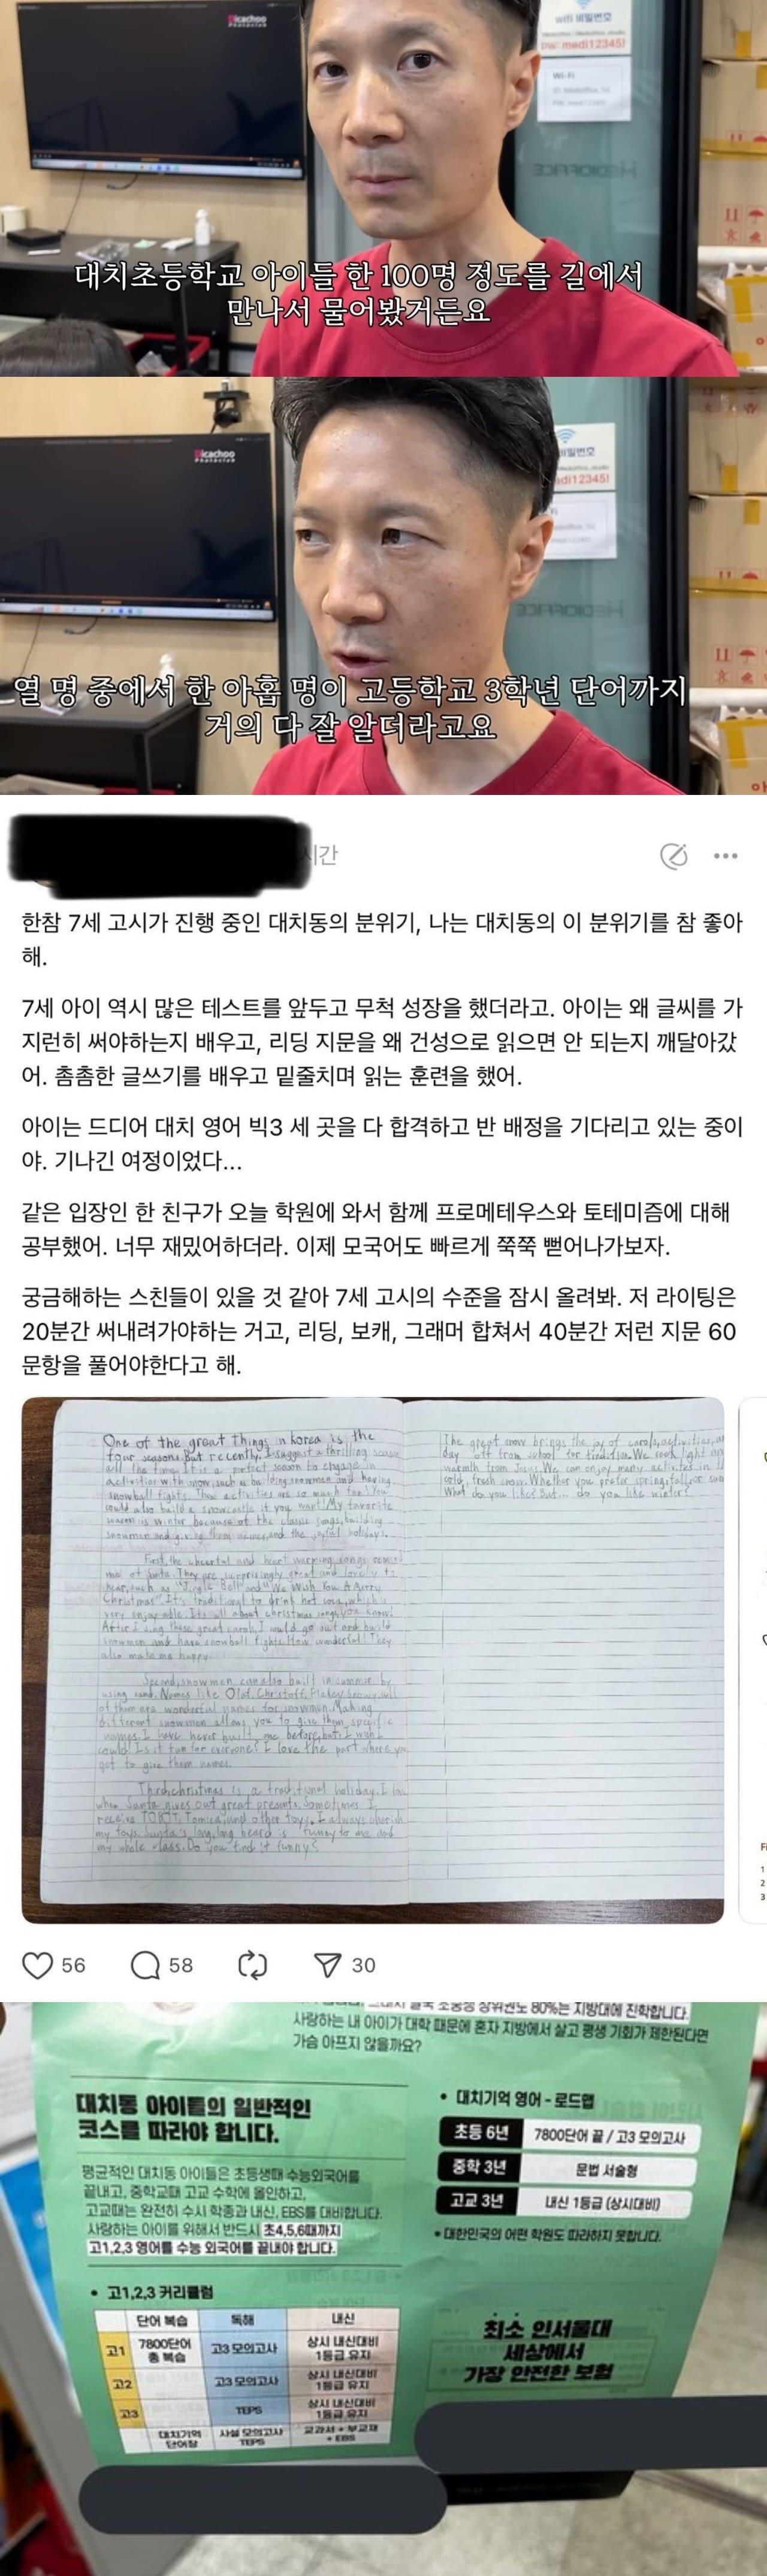 Picachoo
Photoclub
wifi 비밀번호
pw: medi12345!
Wi-Fi
MEDIOFFICE
대치초등학교 아이들 한 100명 정도를 길에서
만나서 물어봤거든요
Picachoo
Photoclub
비밀번호
medi12345!
MEDIOFFICE
열 명 중에서 한 아홉 명이 고등학교 3학년 단어까지
거의 다 잘 알더라고요
시간
한참 7세 고시가 진행 중인 대치동의 분위기, 나는 대치동의 이 분위기를 참 좋아
해.
7세 아이 역시 많은 테스트를 앞두고 무척 성장을 했더라고. 아이는 왜 글씨를 가
지런히 써야하는지 배우고, 리딩 지문을 왜 건성으로 읽으면 안 되는지 깨달아갔
어. 촘촘한 글쓰기를 배우고 밑줄치며 읽는 훈련을 했어.
아이는 드디어 대치 영어 빅3 세 곳을 다 합격하고 반 배정을 기다리고 있는 중이
야. 기나긴 여정이었다...
같은 입장인 한 친구가 오늘 학원에 와서 함께 프로메테우스와 토테미즘에 대해
공부했어. 너무 재밌어하더라. 이제 모국어도 빠르게 쭉쭉 뻗어나가보자.
궁금해하는 스친들이 있을 것 같아 7세 고시의 수준을 잠시 올려봐. 저 라이팅은
20분간 써내려가야하는 거고, 리딩, 보캐, 그래머 합쳐서 40분간 저런 지문 60
문항을 풀어야한다고 해.
One of the great things in korea is the
four seasons. But recently, I suggest a thrilling season
all the time. It is a perfect season to engage in
activities with snow, such as building snowmen and having
snowball fights. The activities are so much fun! You
could also build a snowcastle if you want! My favorite
season is winter because of the classic songs, building
snowmen and giving them names, and the joyful holidays.
First, the cheerful and heart warming songs remind
me of Santa. They are surprisingly great and lovely to
hear, such as "Jingle Bell" and "We Wish You A Merry
Christmas". It's traditional to drink hot coco, which is
very enjoyable. Its all about christmas songs, you know!
After I sing these great carols, I would go out and build
snowmen and have snowball fights. How wonderful! They
also make me happy.
Second, snowmen can also built in summer by
using sand. Names like Olaf, Christoff, Flakey, Snowy, all
of them are wonderful names for snowmen. Making
different snowmen allows you to give them specific
names. I have never built one before, but I wish I
could! Is it fun for everyone? I love the part where you
get to give them names.
Third, christmas is a traditional holiday. I love
when Santa gives out great presents. Sometimes I
receive TOBOT, Tomica, and other toys. I always cherish
my toys. Santa's long, long beard is funny to me and
my whole class. Do you find it funny?
The great snow brings the joy of carols, activities, and
day off from school for tradition. We seek light and
warmth from fires. We can enjoy many activites in the
cold, fresh snow. Whether you prefer spring, fall, or sum
What do you like? But... do you like winter?
56
58
30
80%는 지방대에 진학합니다.
사랑하는 내 아이가 대학 때문에 혼자 지방에서 살고 평생 기회가 제한된다면
가슴 아프지 않을까요?
대치동 아이들의 일반적인
코스를 따라야 합니다.
평균적인 대치동 아이들은 초등생때 수능외국어를
끝내고, 중학교때 고교 수학에 올인하고,
고교때는 완전히 수시 학종과 내신, EBS를 대비합니다.
사랑하는 아이를 위해서 반드시 초4,5,6때까지
고1,2,3 영어를 수능 외국어를 끝내야 합니다.
• 고1,2,3 커리큘럼
단어 복습 독해 내신
고1 7800단어 총 복습 고3 모의고사 상시 내신대비 1등급 유지
고2 고3 모의고사 상시 내신대비 1등급 유지
고3 TEPS 상시 내신대비 1등급 유지
대치기억 단어장 사설 모의고사 TEPS 교과서 + 부교재 + EBS
• 대치기억 영어 - 로드맵
초등 6년 7800단어 끝 / 고3 모의고사
중학 3년 문법 서술형
고교 3년 내신 1등급 (상시대비)
• 대한민국의 어떤 학원도 따라하지 못합니다.
최소 인서울대
세상에서
가장 안전한 보험